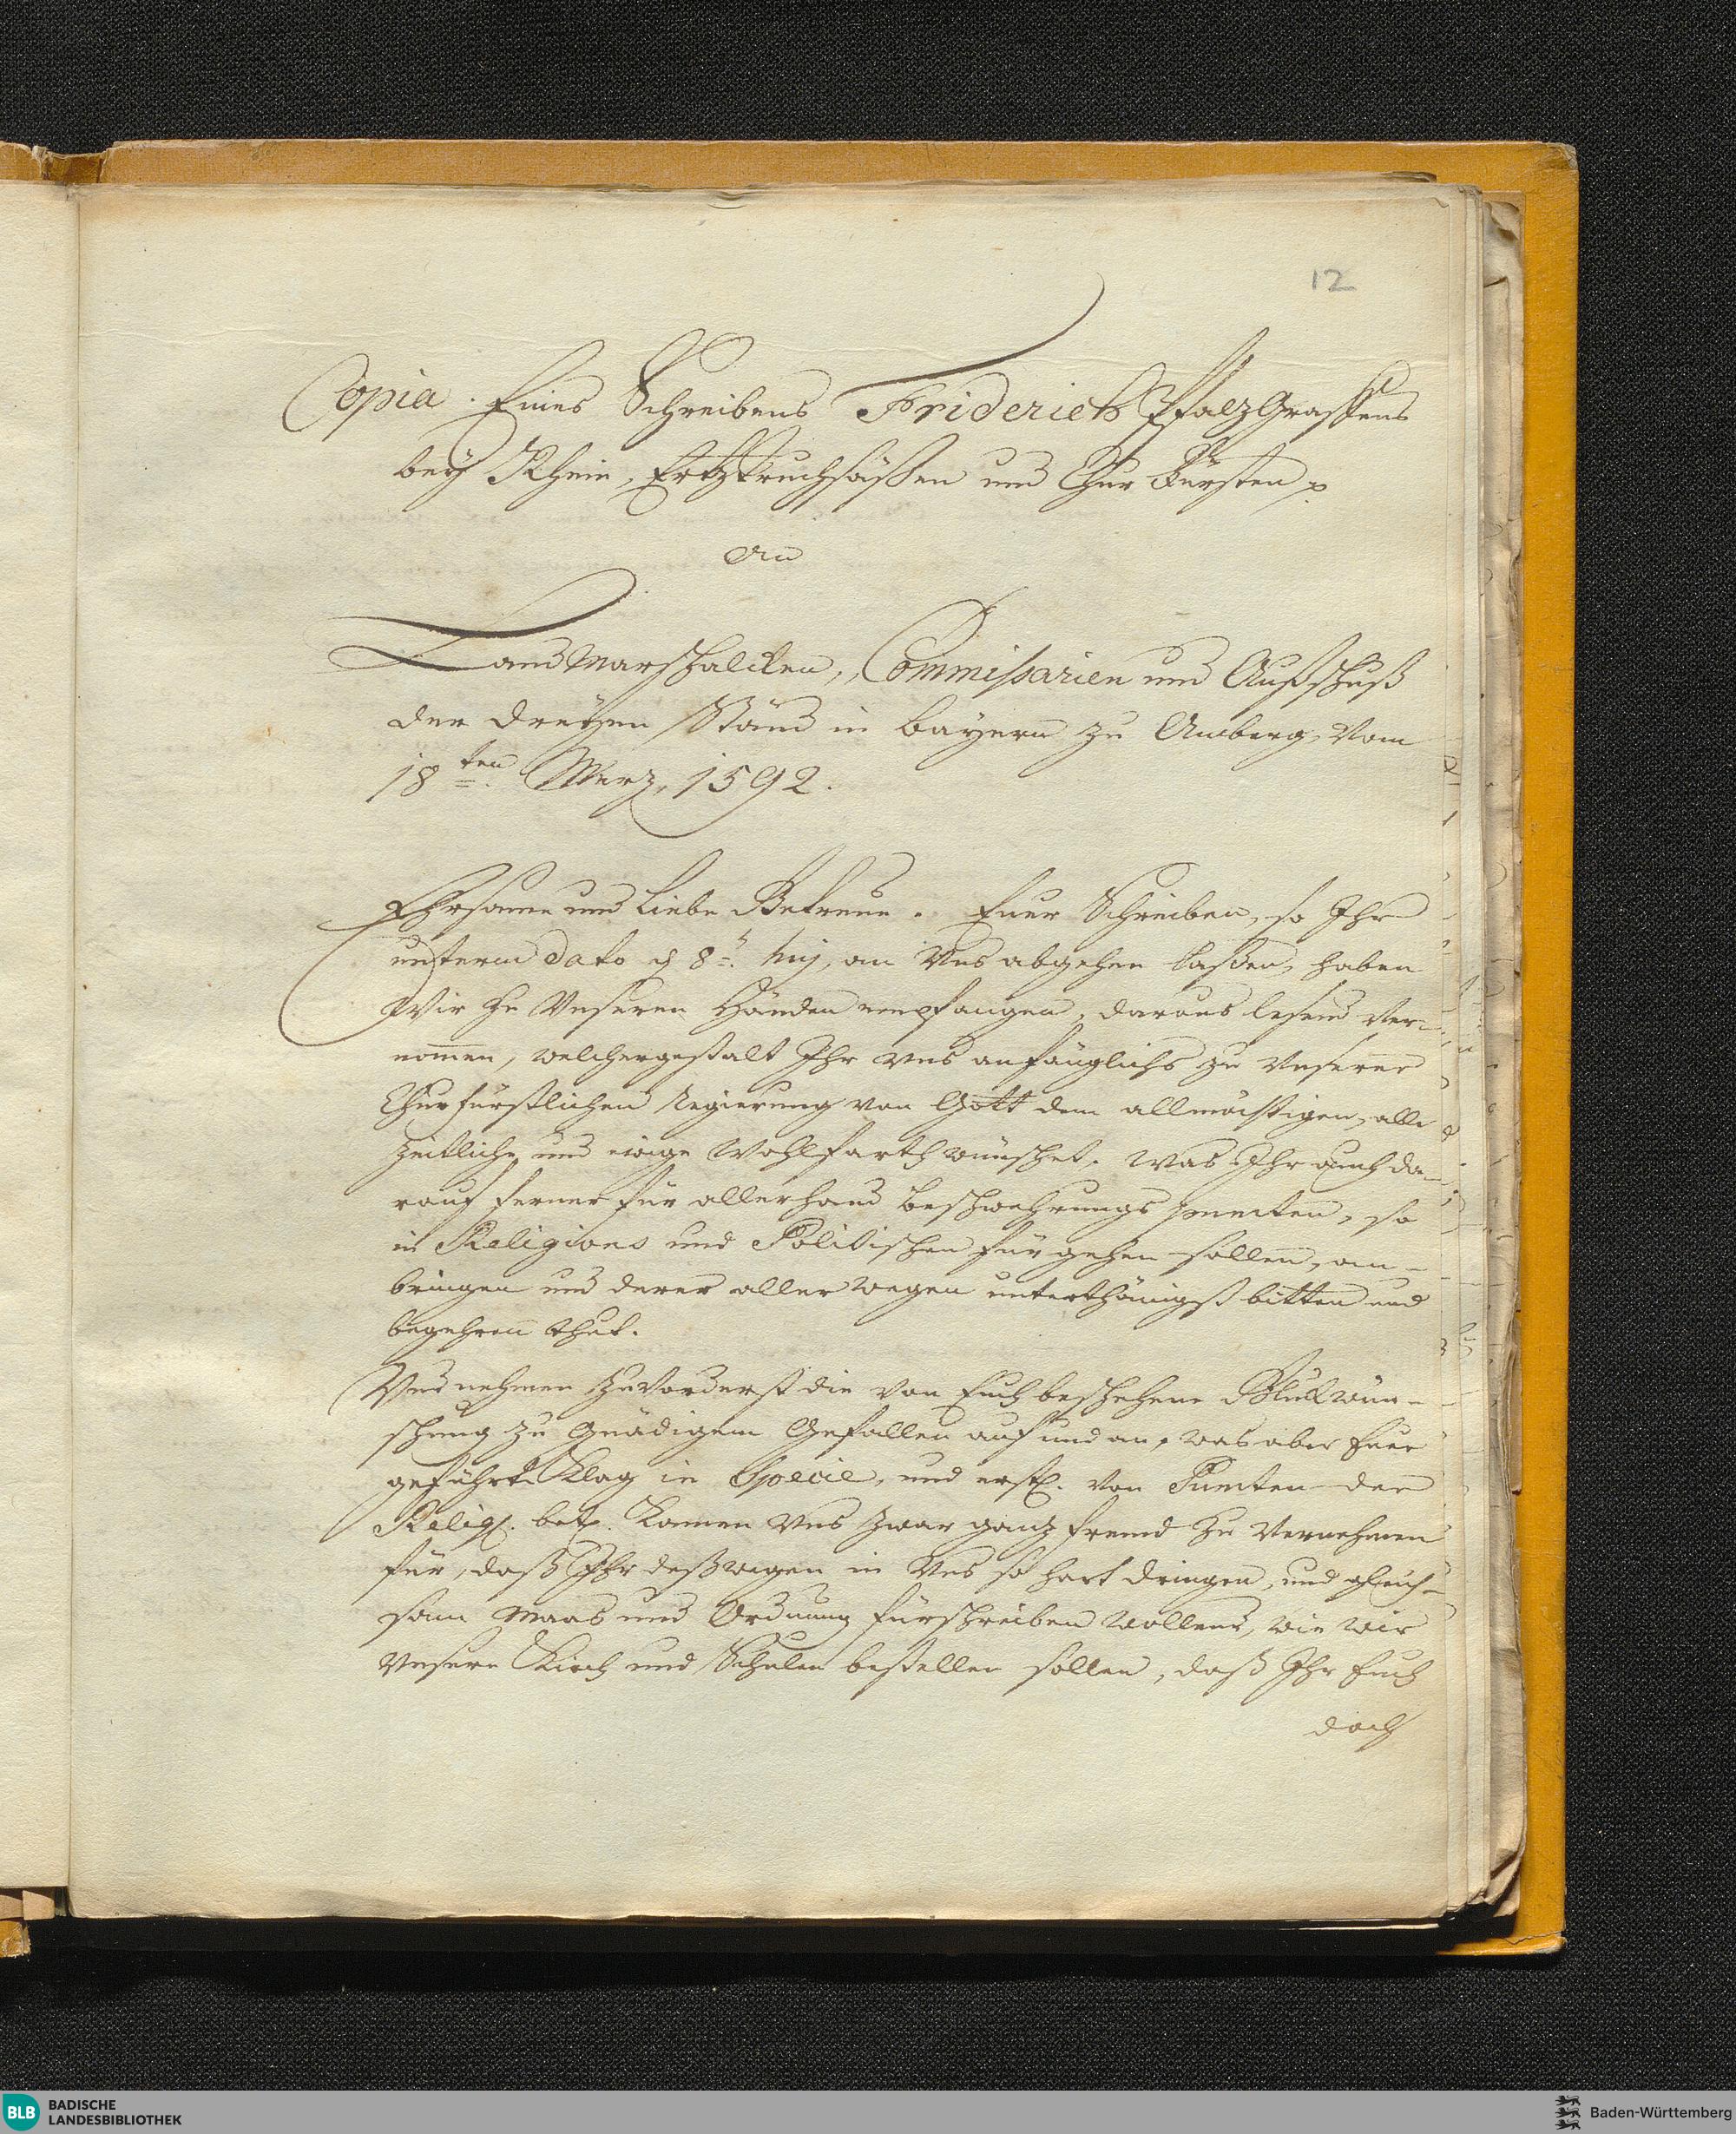 12
Copia Eines Schreibens Friderichs Pfalz Graffens
bey Rhein, Ertztruchsäßen und Chur Fürsten p
an
Land Marschalcken, Commissarien und Außschuß
der dreyen Ständ in Bayern zu Amberg, vom
18ten Merz, 1592.
Ehrsame und Liebe Getreue. Euer Schreiben, so Ihr
unterm dato d 8ᵗ. huj, an Vns abgehen laßen, haben
Wir zu Vnseren Händen empfangen, daraus lesend ver-
nommen, welchergestalt Ihr vns anfänglichs zu Vnserer
Churfürstlichen Regierung von Gott dem allmächtigen, alle
zeitliche und ewige Wohlfarth wünschet. Was Ihr auch da-
rauf ferner für allerhand beschwehrungs puncten, so
in Religions und Politischen für gehen sollen, an-
bringen und derer aller wegen unterthänigst bitten und
begehren thut.
Vnd nehmen zuvorderst die von Euch beschehene Glückwün-
schung zu Gnädigem Gefallen auf und an, was aber Euer
geführte Klag in Specie, und erstl. von Puncten der
Relig. betr. kommen Vns zwar ganz fremd zu vernehmen
für, daß Ihr deßwegen in Vns so hart dringen, und gleich-
sam Maas und Ordnung fürschreiben wollend, wie wir
Vnsere Kirch und Schulen bestellen sollen, daß Ihr Euch
doch
BLB BADISCHE
LANDESBIBLIOTHEK
Baden-Württemberg